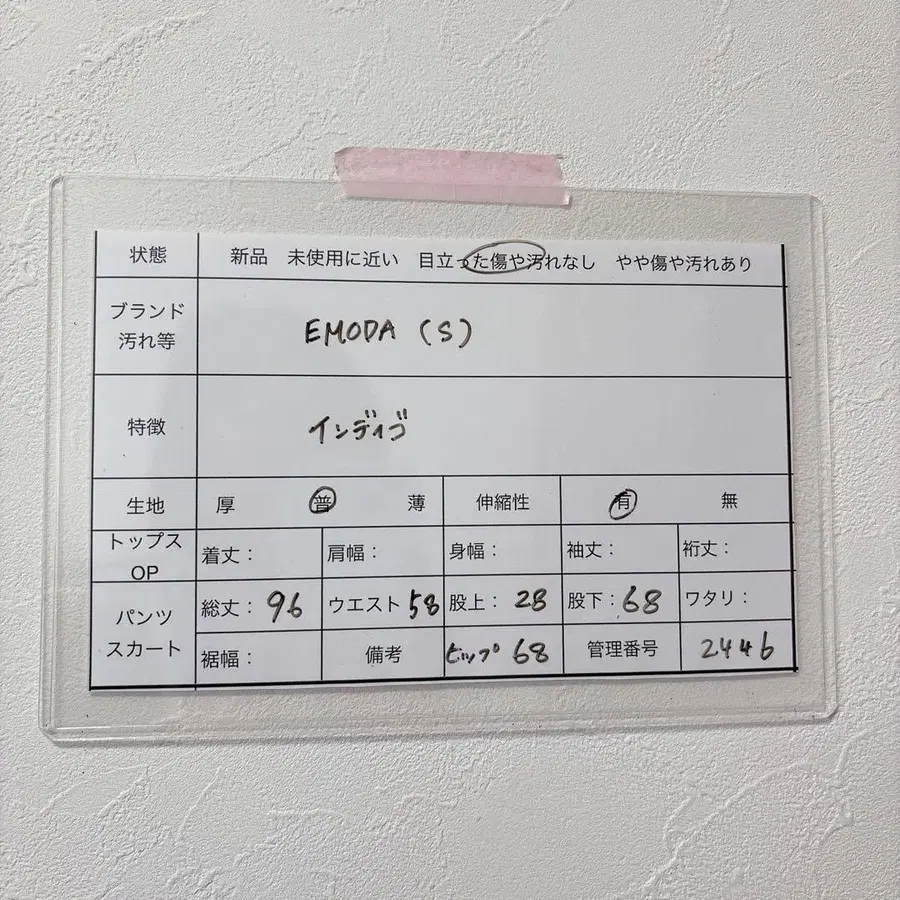 状態 新品 未使用に近い 目立った傷や汚れなし やや傷や汚れあり
ブランド
汚れ等
EMODA (S)
特徴 インディゴ
生地 厚 普 薄 伸縮性 有 無
トップス
OP
着丈： 肩幅： 身幅： 袖丈： 裄丈：
パンツ
スカート
総丈：96 ウエスト 58 股上：28 股下：68 ワタリ：
裾幅： 備考 ヒップ 68 管理番号 2446